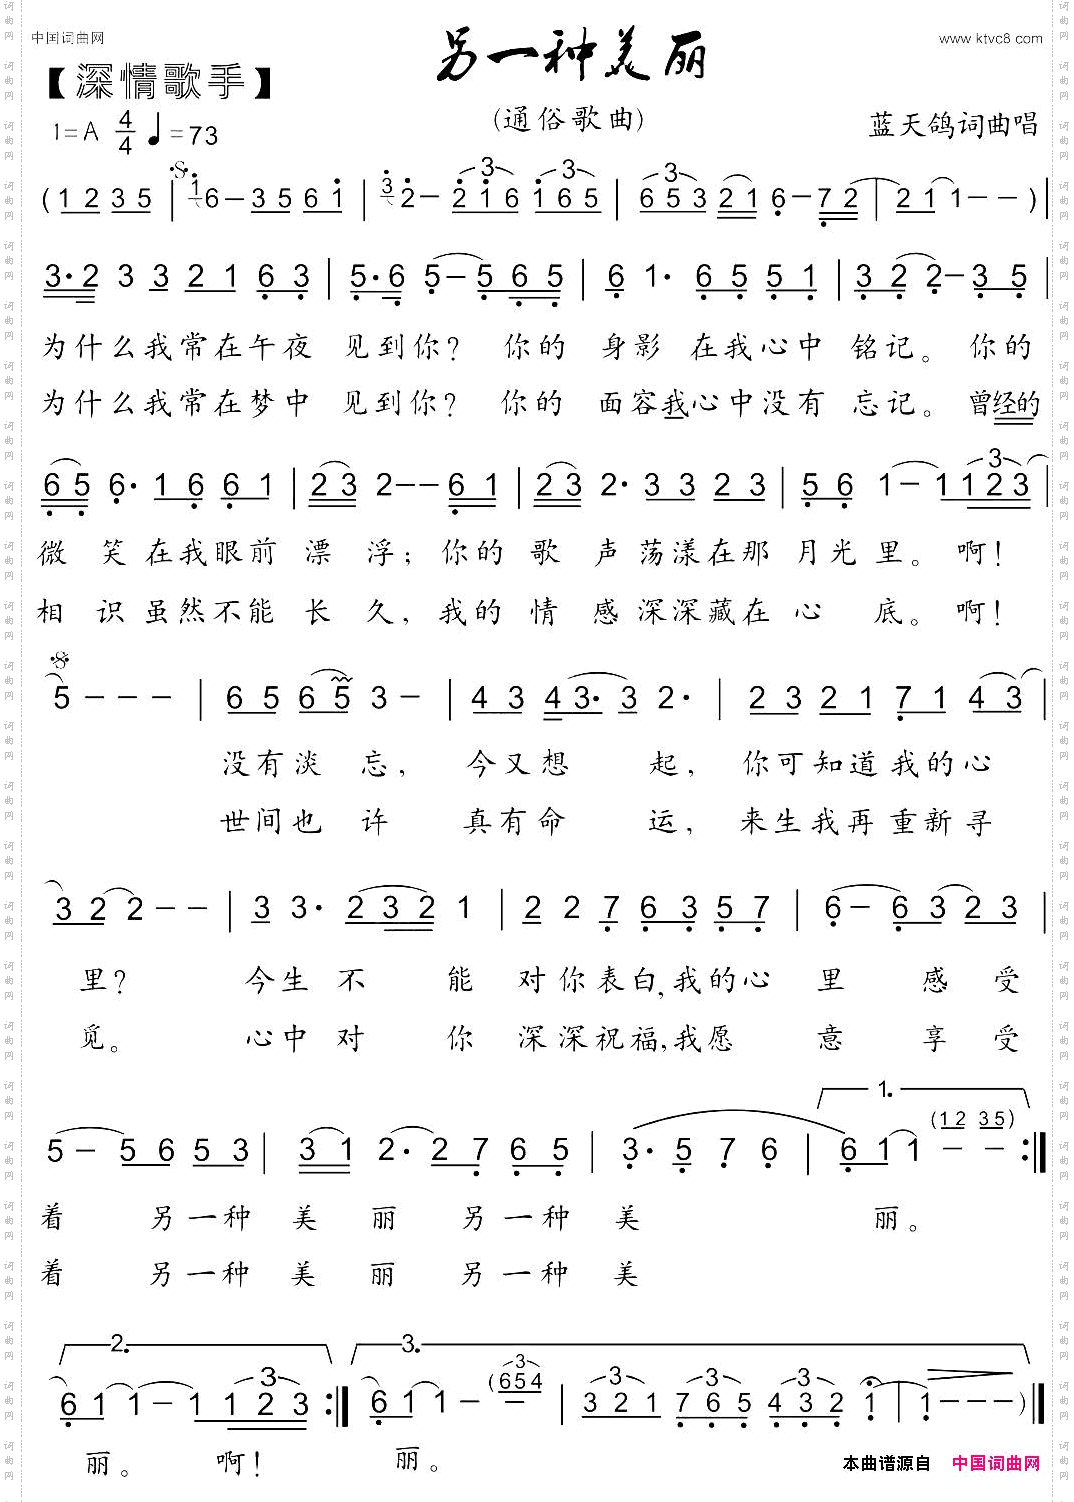 中国词曲网
www.ktvc8.com
另一种美丽
【深情歌手】
(通俗歌曲)
1=A 4/4 ♩=73
蓝天鸽词曲唱
(1 2 3 5 | 1 6 - 3 5 6 1 | 3 2 - 2 1 6 1 6 5 | 6 5 3 2 1 6 - 7 2 | 2 1 1 - - )|
3· 2 3 3 2 1 6 3 | 5· 6 5 - 5 6 5 | 6 1· 6 5 5 1 | 3 2 2 - 3 5 |
为什么我常在午夜 见到你？ 你的 身影 在我心中 铭记。 你的
为什么我常在梦中 见到你？ 你的 面容我心中没有 忘记。 曾经的
6 5 6· 1 6 6 1 | 2 3 2 - - 6 1 | 2 3 2· 3 3 2 3 | 5 6 1 - 1 1 2 3 |
微 笑在我眼前 漂 浮； 你的 歌 声荡漾在那 月光里。 啊！
相 识虽然不能 长 久， 我的 情 感深深藏在 心 底。 啊！
5 - - - | 6 5 6 5 3 - | 4 3 4 3· 3 2· | 2 3 2 1 7 1 4 3 |
没有淡 忘， 今又想 起， 你可知道我的心
世间也 许 真有命 运， 来生我再重新寻
3 2 2 - - | 3 3· 2 3 2 1 | 2 2 7 6 3 5 7 | 6 - 6 3 2 3 |
里？ 今生不 能 对你表白,我的心 里 感 受
觅。 心中对 你 深深祝福,我愿 意 享 受
1.
5 - 5 6 5 3 | 3 1 2· 2 7 6 5 | 3· 5 7 6 | 6 1 1 - - (1 2 3 5) :|
着 另一种 美 丽 另一种 美 丽。
着 另一种 美 丽 另一种 美
2. 3.
6 1 1 - 1 1 2 3 :| 6 1 1 - (6 5 4 | 3 2 1 7 6 5 4 3 2 1 | 1 - - - )|
丽。 啊！ 丽。
本曲谱源自 中国词曲网